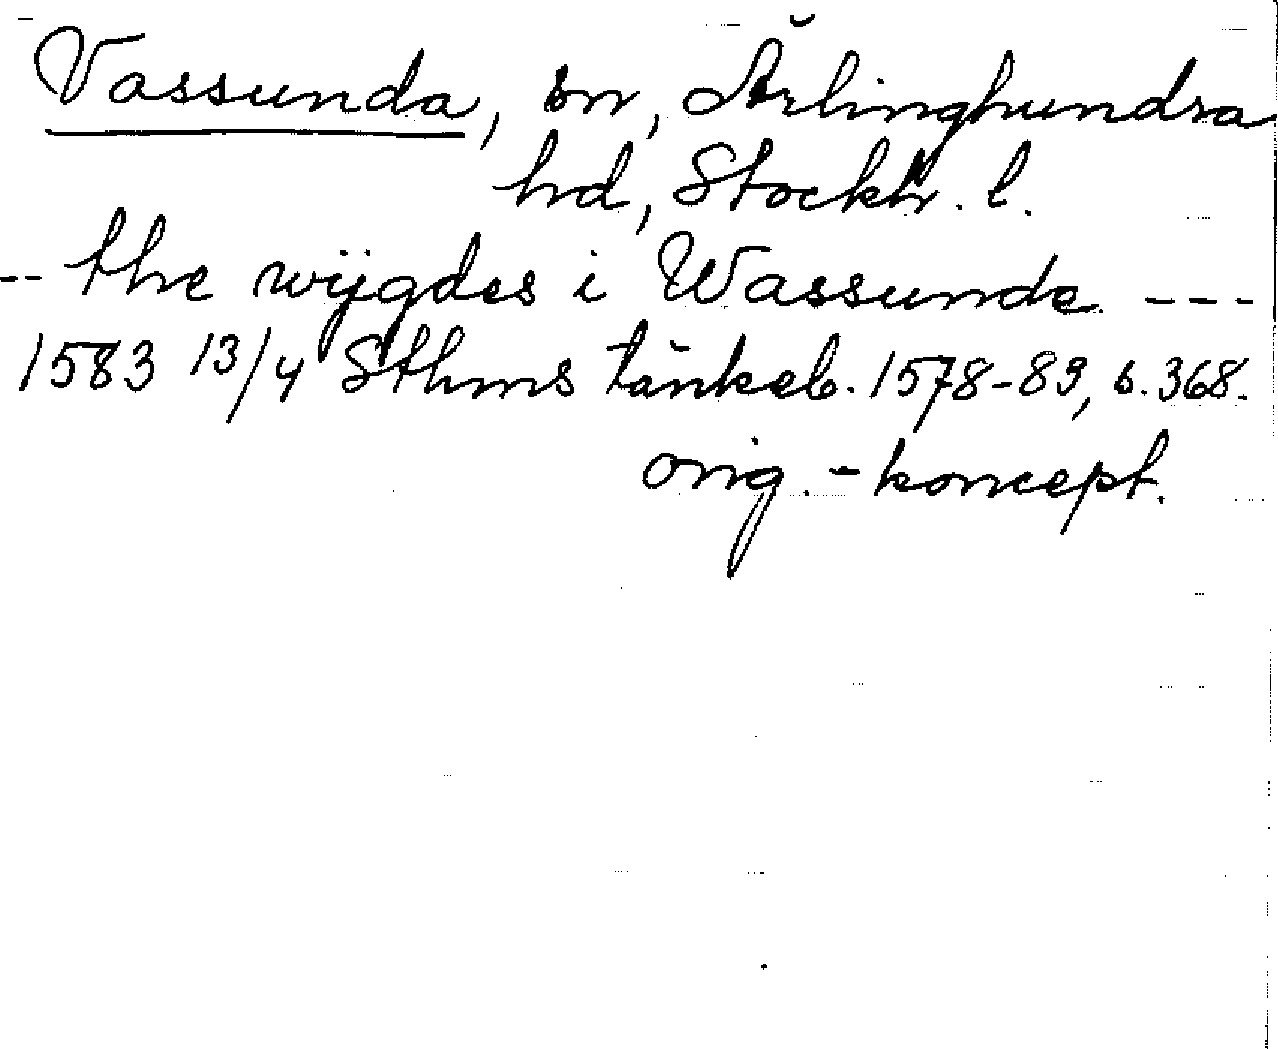 Vassunda, sn, Ärlinghundra
hd, Stockh. l.
-- the wijgdes i Wassunda ---
1583 13/4 Sthms tänkeb. 1578-83, s. 368.
orig.-koncept.